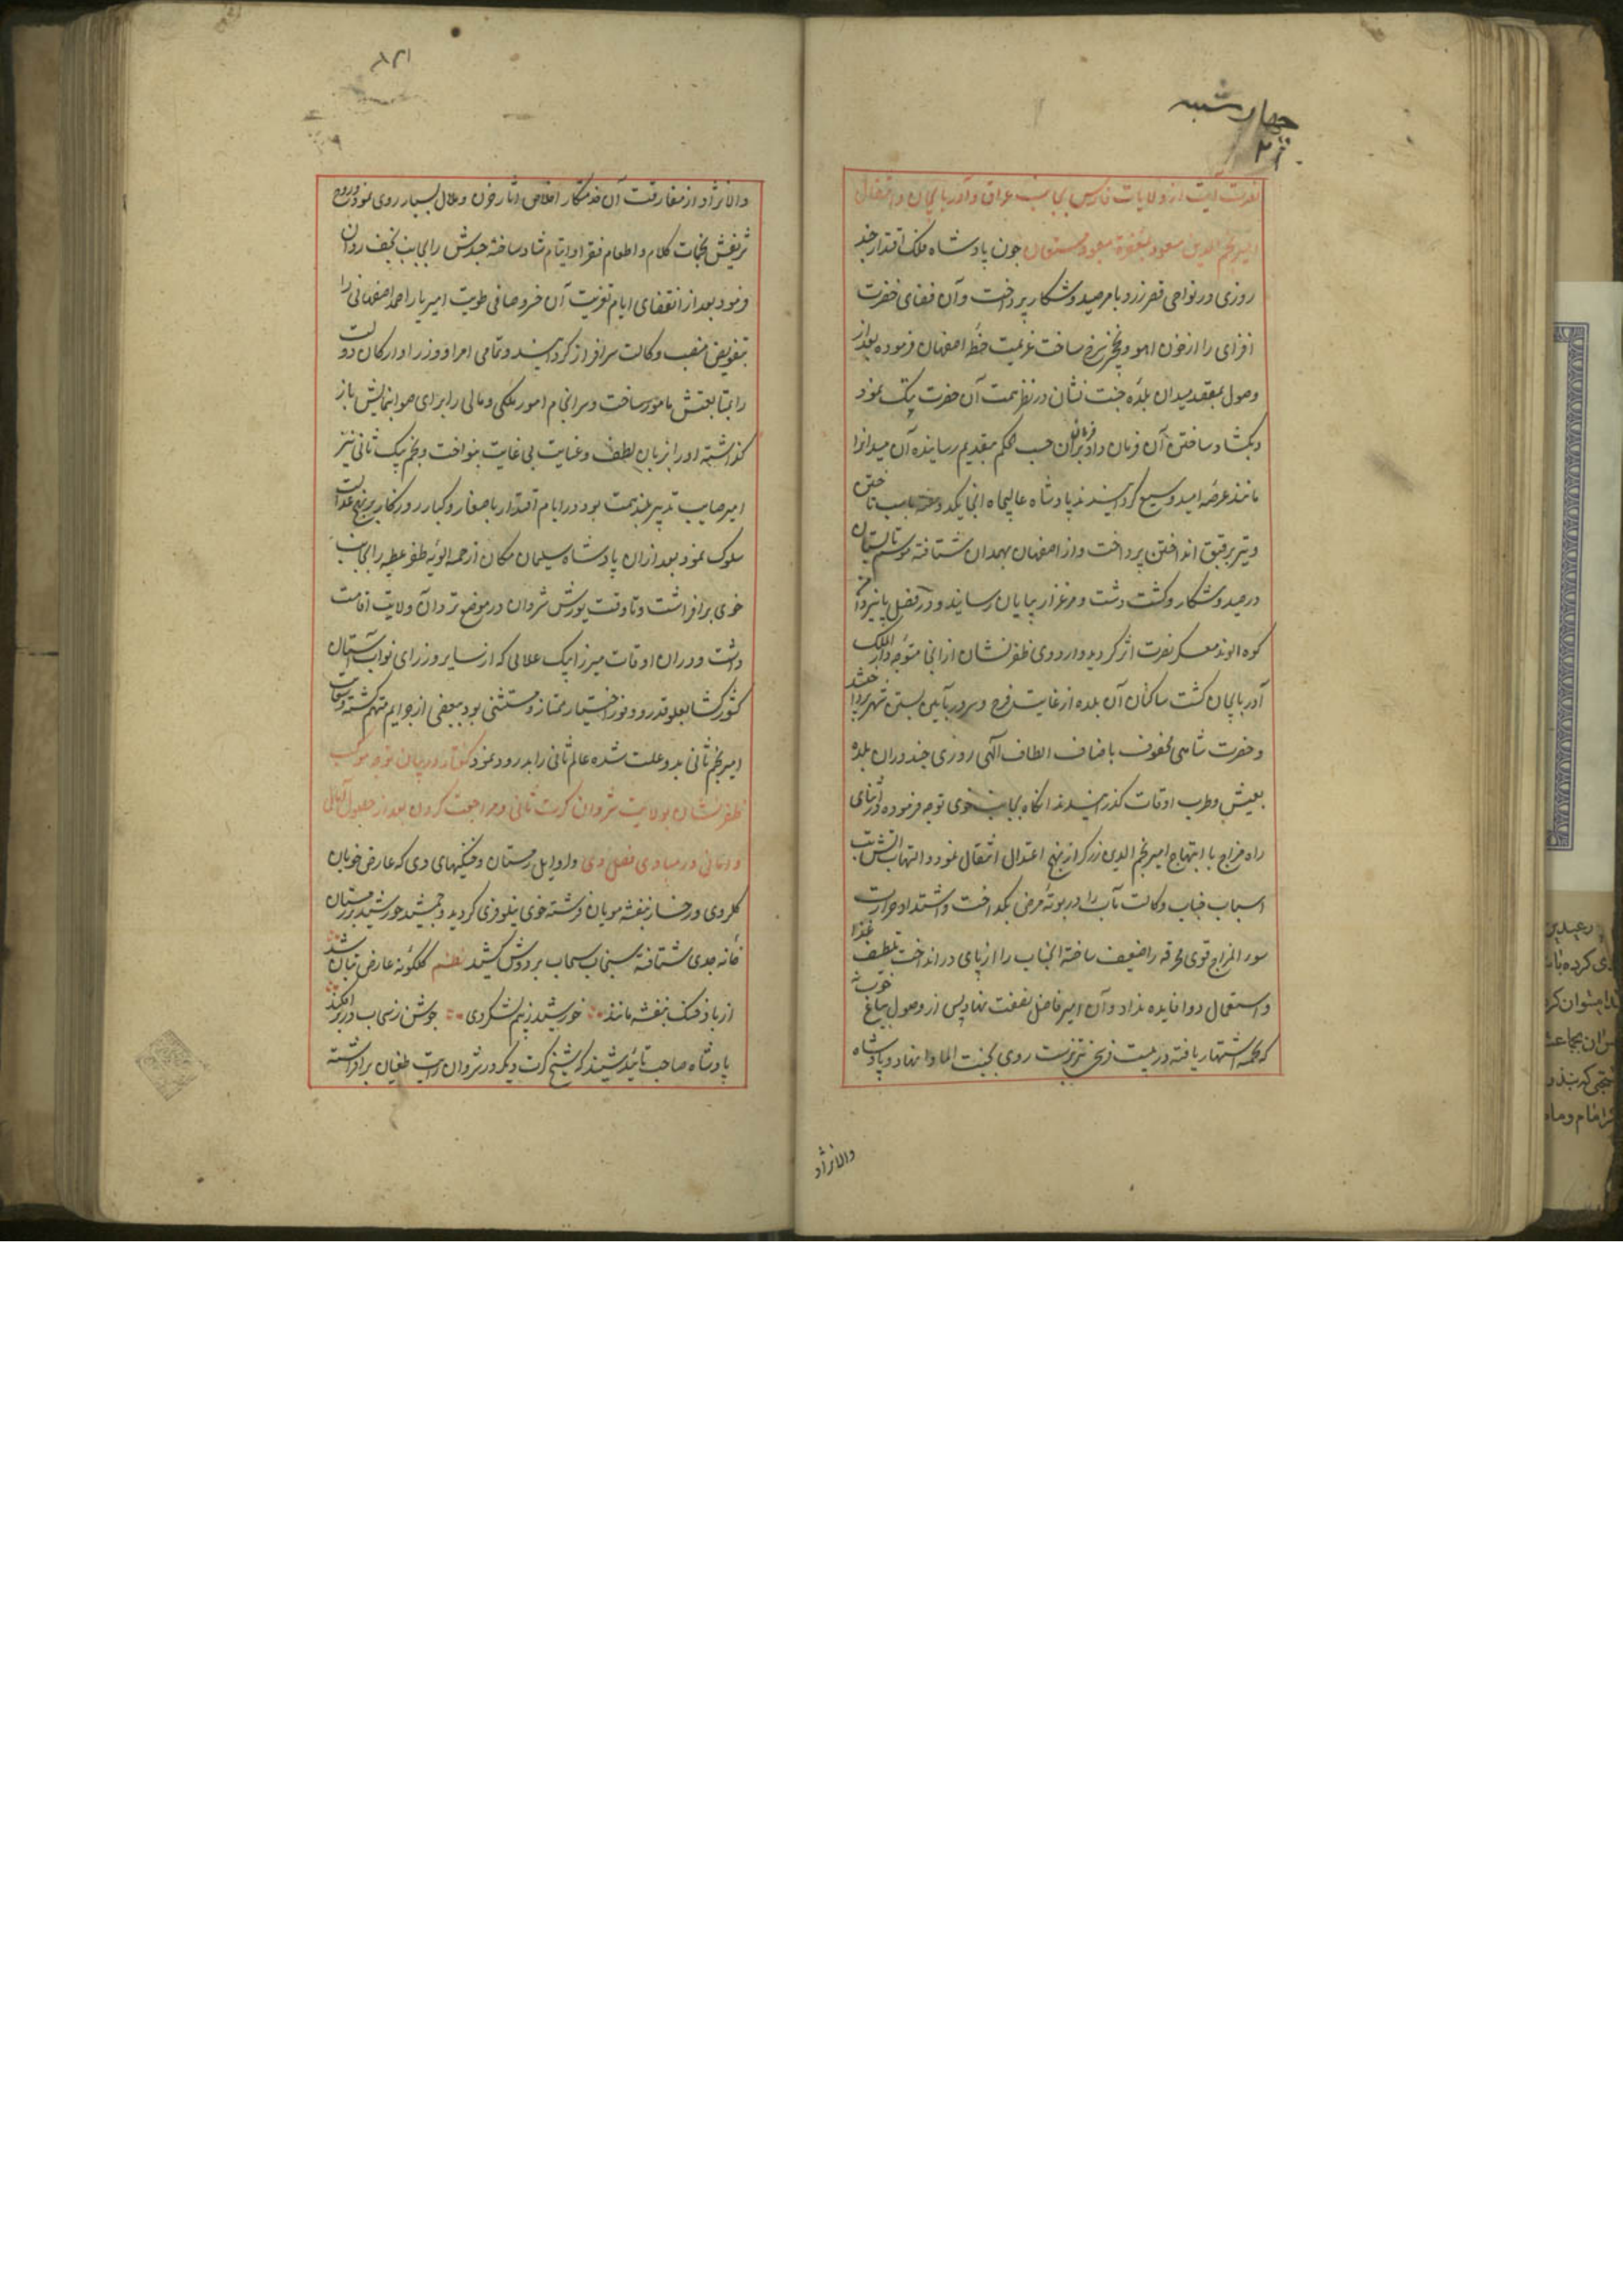 چهارشنبه
نصرت آیت از ولایات فارس بجانب عراق و آذربایجان و انتقال
امیر نجم الدین مسعود بمغفرة معبود مستعان چون پادشاه فلک اقتدار چند
روزی در نواحی قصر زرد بامر صید و شکار پرداخت و آن فضای خضرت
افزای را از خون آهو و نخچیر سرخ ساخت عزیمت خطهٔ اصفهان فرموده بعد از
وصول بمقصد میدان بلدهٔ جنت نشان در نظر همت آن حضرت تنک نمود
و بکشاد ساختن آن فرمان داد و فرمان بران حسب الحکم بتقدیم رسانیده آن میدانرا
مانند عرصهٔ امید وسیع کردانیدند پادشاه عالیجاه آنجا یکدو دفعه باسب تاختن
و تیر بر قبق انداختن پرداخت و از اصفهان بهمدان شتافته موسم تابستان
در صید و شکار و کشت دشت و مرغزار بپایان رسانید و در فصل پائیز دامن
کوه الوند معسکر نصرت اثر کردید و اردوی ظفرنشان از آنجا متوجه دارالملک
آذربایجان کشت ساکنان آن بلده از غایت فرح و سرور بآیین بستن شهر پرداختند
و حضرت شاهی محفوف باصناف الطاف الهی روزی چند در آن بلده
بعیش و طرب اوقات کذرانیدند آنکاه بجانب خوی توجه فرموده در اثنای
راه مزاج با ابتهاج امیر نجم الدین زرکر از نهج اعتدال انتقال نمود و التهاب آتش تب
اسباب جناب وکالت مآب را در بوتهٔ مرض بکداخت و اشتداد حرارت
سوء المزاج قوی محرقه را ضعیف ساخته آنجناب را از پای در انداخت تلطیف غذا
و استعمال دوا فایده نداد و آن امیر فاضل نصفت نهاد پس از وصول بباغ خوب
که بخمسه اشتهار یافته در بیست فرسخی تبریزست روی بجنت الماوا نهاد و پادشاه
والانژاد
۸۲۱
والانژاد از مفارقت آن خدمتکار اخلاص آثار حزن و ملال بسیار روی نمود و روح
شریفش بختمات کلام و اطعام فقرا و ایتام شاد ساخته جسدش را بجانب نجف روان
فرمود بعد از انقضای ایام تعزیت آن خسرو صافی طویت امیر یار احمد اصفهانی را
بتفویض منصب وکالت سرافراز کردانید و تمامی امرا و وزرا و ارکان دولت
را بمتابعتش مامور ساخت و سرانجام امور ملکی و مالی را برای صوابنمایش باز
کذاشته او را بزبان لطف و عنایت بی غایت بنواخت و نجم بیک ثانی نیز
امیر صایب تدبیر بلند همت بود در ایام اقتدار با صغار و کبار روزکار بر نهج عدالت
سلوک نمود بعد از ان پادشاه سلیمان مکان از خمسه الویهٔ ظفر عطیه را بجانب
خوی برافراشت و تا وقت یورش شروان در موضع نزدان ولایت اقامت
داشت و در ان اوقات میرزا بیک علالی که از سایر وزرای نواب آستان
کشورکشا بعلو قدر و وفور اختیار ممتاز و مستثنی بود ببعضی از جرایم متهم کشته و سعایت
امیر نجم ثانی بد و علت شده عالم فانی را بدرود نمود کفتار در بیان توجه موکب
ظفرنشان بولایت شروان کرت ثانی و مراجعت کردن بعد از حصول آمال
و امانی در مبادی فصل دی و اوایل زمستان و خنکیهای دی که عارض خوبان
کلروی و رخسار بنفشه مویان فرشته خوی نیلوفری کردید و جمشید خورشید در زمستان
خانهٔ جدی شتافته سنجاب سحاب بر دوش کشید نظم کلکونهٔ عارض بتان شد
از باد خنک بنفشه مانند خورشید ز بیم لشکر دی جوشن ز سحاب در بر افکند
پادشاه صاحب تائید شنید که شیخ کرت دیکر در شروان رایت طغیان برافراشته